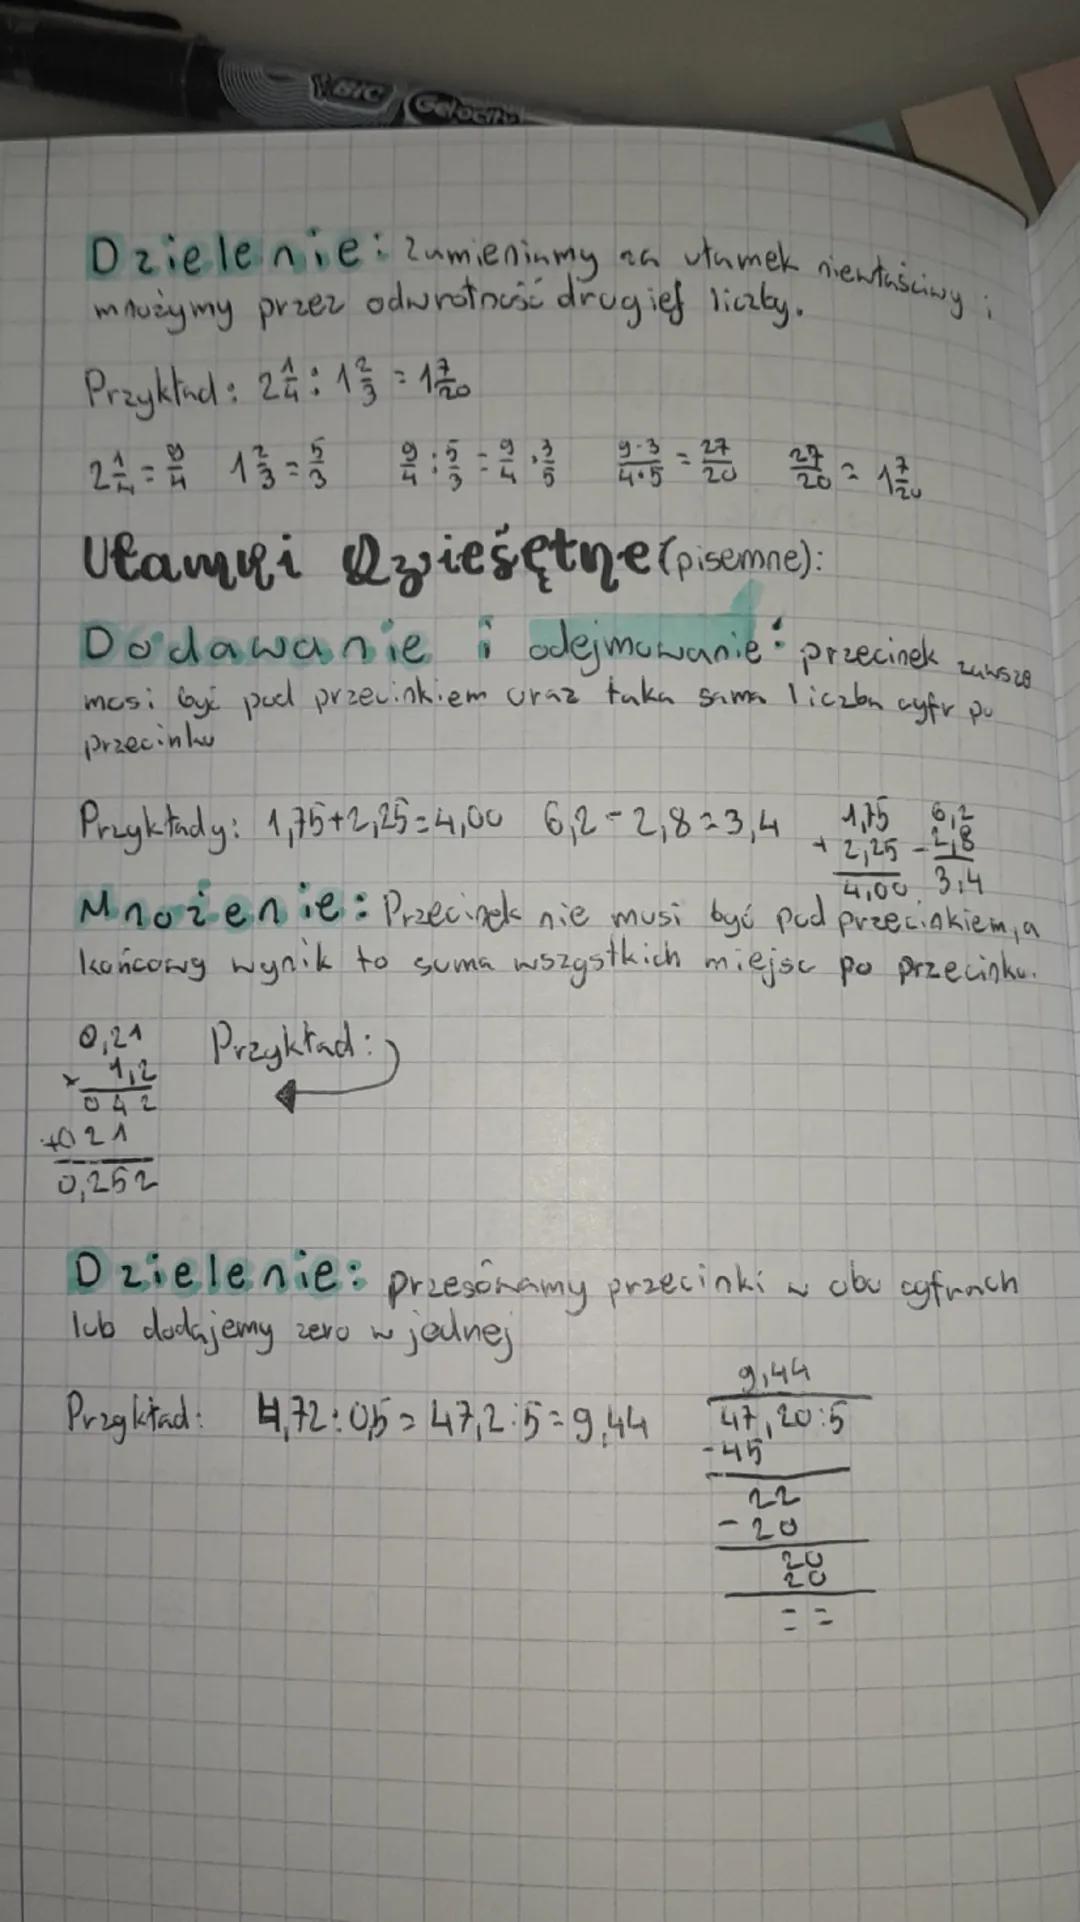 BIC Gelocity
Dzielenie: zamieniamy na ułamek niewłaściwy i
mnożymy przez odwrotność drugiej liczby.
Przykład: 2 1/4 : 1 2/3 = 1 7/20
2 1/4 = 9/4 1 2/3 = 5/3 9/4 : 5/3 = 9/4 · 3/5 9·3/4·5 = 27/20 27/20 = 1 7/20
Ułamki Dziesiętne (pisemne):
Dodawanie i odejmowanie: przecinek zawsze
musi być pod przecinkiem oraz taka sama liczba cyfr po
przecinku
Przykłady: 1,75+2,25=4,00 6,2-2,8=3,4
1,75
+ 2,25
4,00
6,2
- 2,8
3,4
Mnożenie: Przecinek nie musi być pod przecinkiem, a
końcowy wynik to suma wszystkich miejsc po przecinku.
Przykład:
0,21
x 1,2
042
+021
0,252
Dzielenie: przesówamy przecinki w obu cyfrach
lub dodajemy zero w jednej
Przykład: 4,72:0,5=47,2:5=9,44
9,44
47,20:5
-45
22
-20
20
20
= =